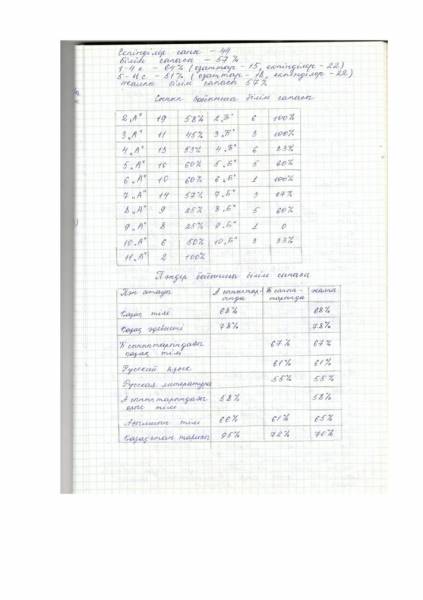 Екпінділер саны – 44
Білім сапасы – 57%
1-4 с – 64% (озаттар – 15, екпінділер – 22)
5-11 с – 51% (озаттар – 18, екпінділер – 22)
Жалпы білім сапасы 57%
Сынып бойынша білім сапасы
2 „А" 19 58% 2 „Б" 6 100%
3 „А" 11 45% 3 „Б" 3 100%
4 „А" 13 53% 4 „Б" 6 83%
5 „А" 10 60% 5 „Б" 5 60%
6 „А" 10 60% 6 „Б" 1 100%
7 „А" 14 57% 7 „Б" 3 67%
8 „А" 9 25% 8 „Б" 5 60%
9 „А" 8 25% 9 „Б" 1 0
10 „А" 6 50% 10 „Б" 3 33%
11 „А" 2 100%
Пәндер бойынша білім сапасы
Пән атауы А сыныптарында Б сыныптарында жалпы
Қазақ тілі 68% 68%
Қазақ әдебиеті 78% 78%
Б сыныптарындағы қазақ тілі 67% 67%
Русский язык 61% 61%
Русская литература 55% 55%
А сыныптарындағы орыс тілі 58% 58%
Ағылшын тілі 66% 61% 65%
Қазақстан тарихы 75% 72% 70%